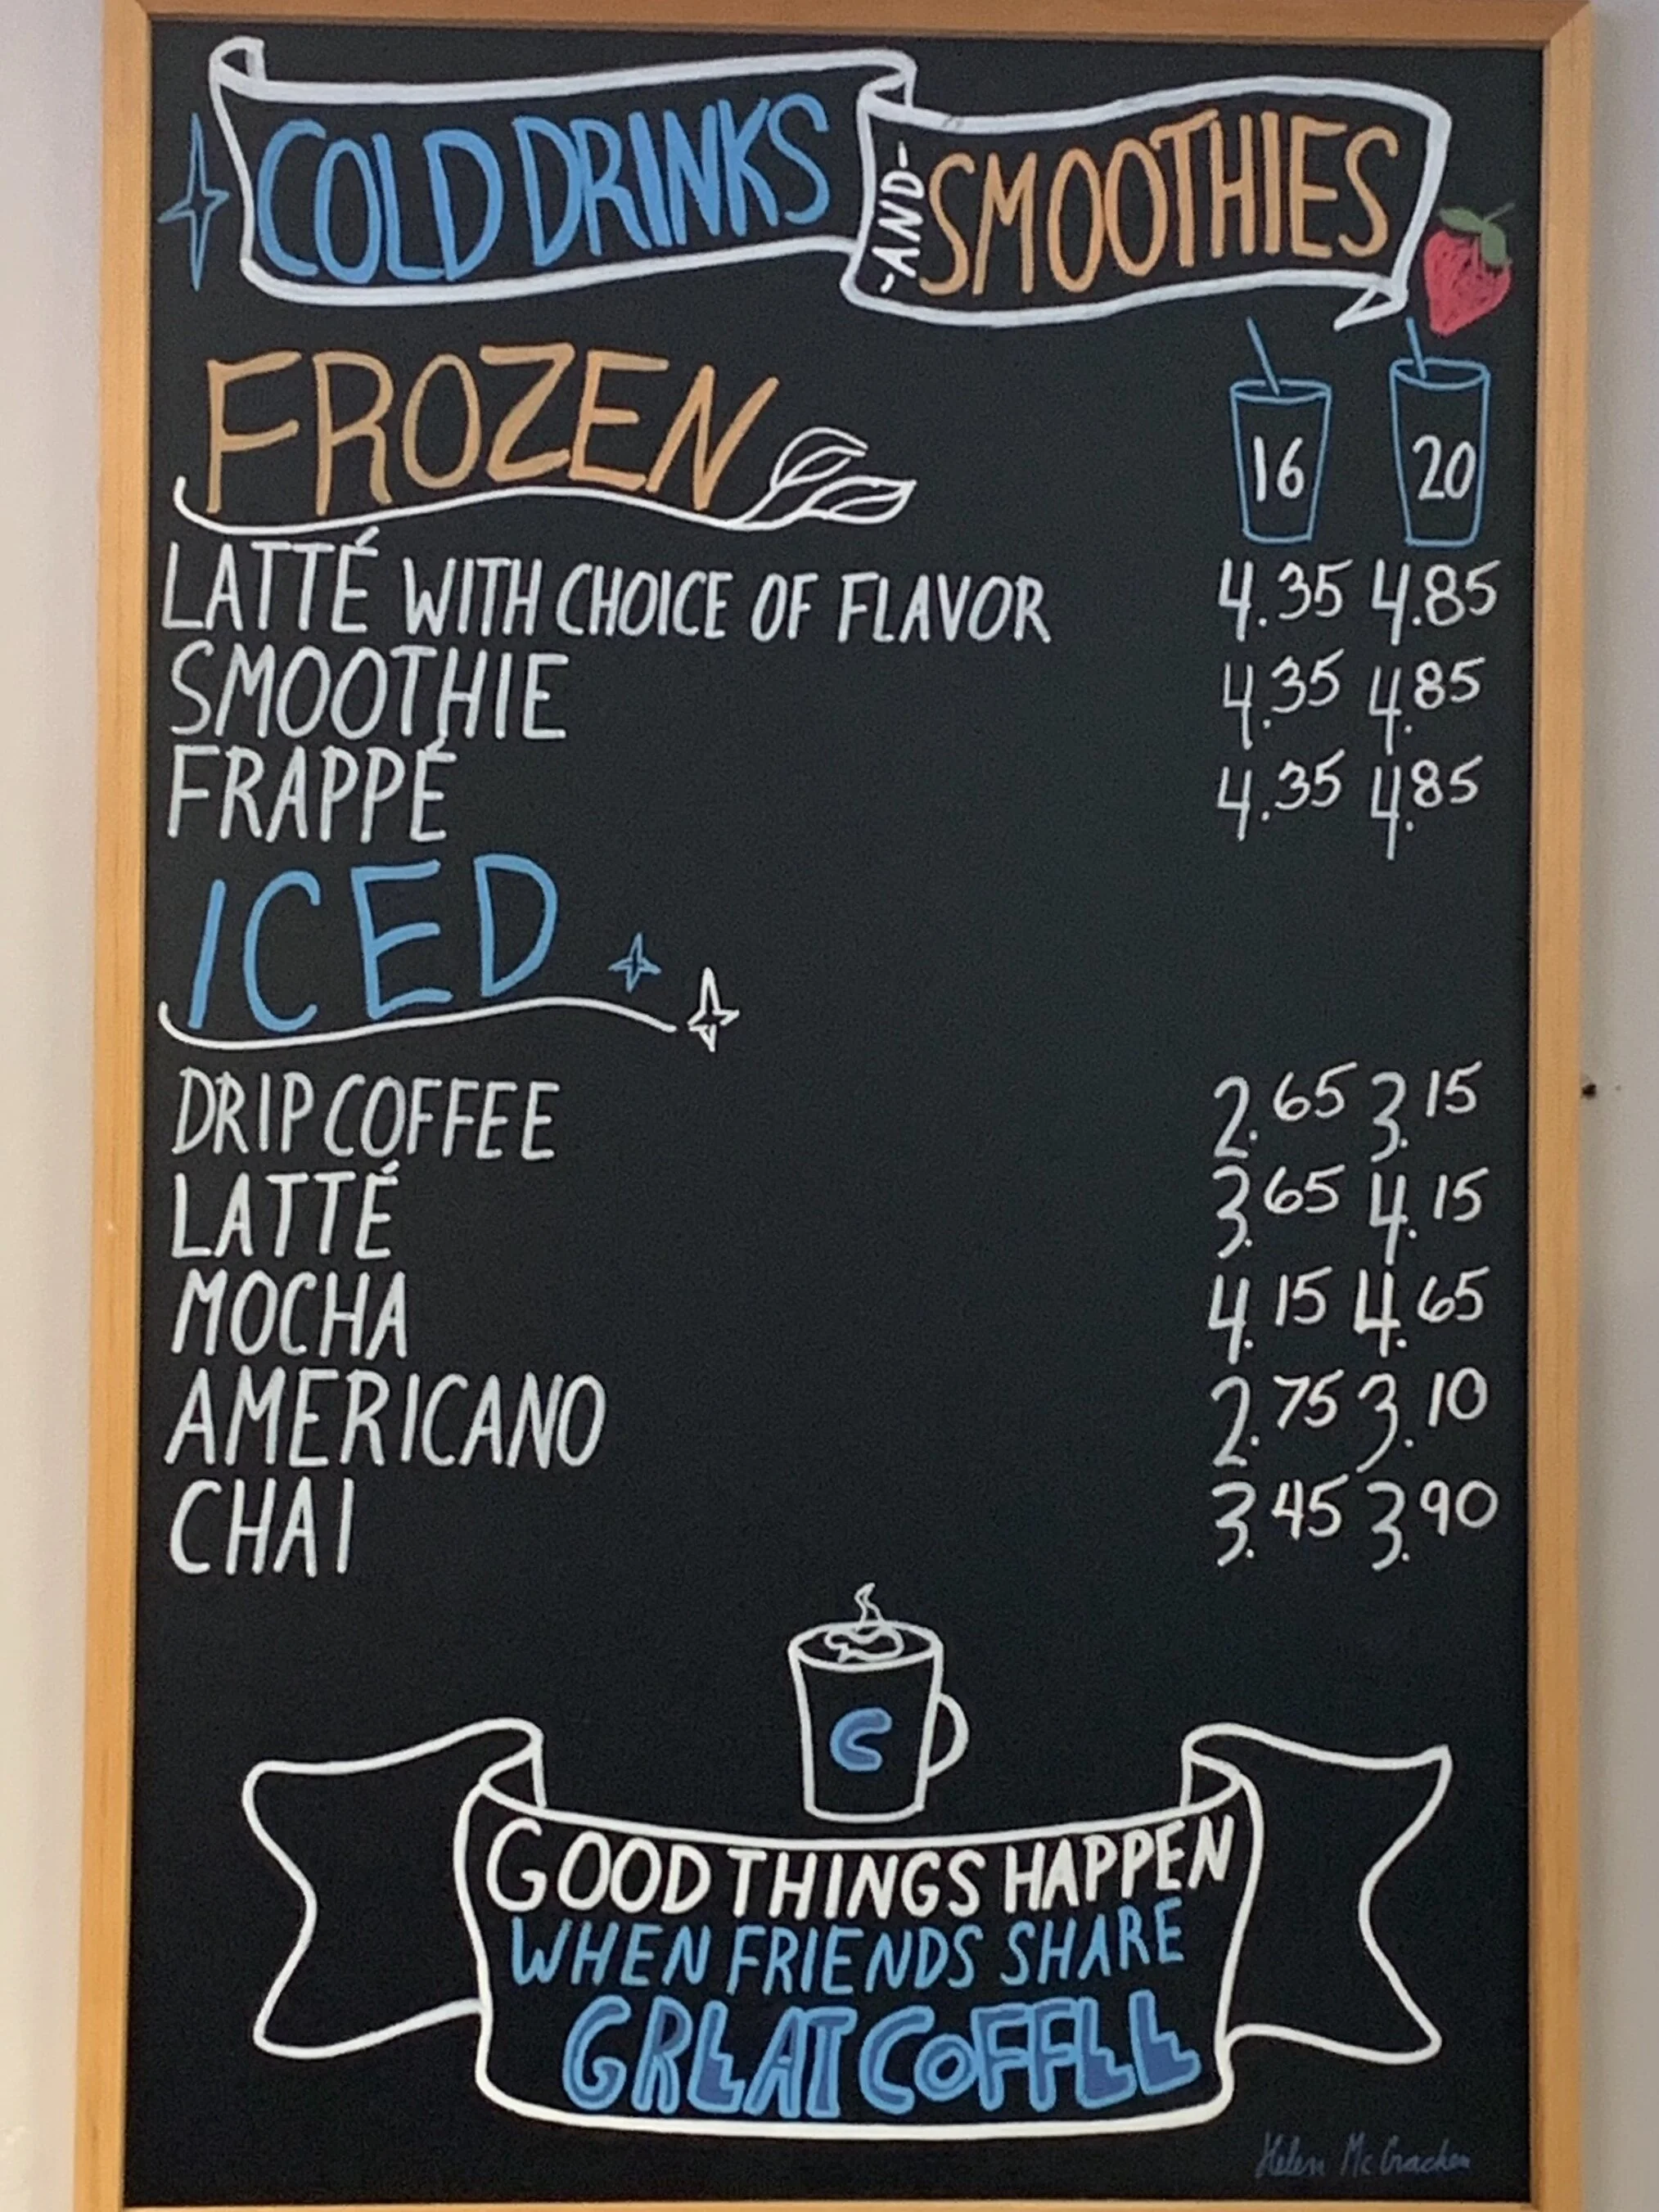 COLD DRINKS -AND- SMOOTHIES
FROZEN 16 20
LATTÉ WITH CHOICE OF FLAVOR 4.35 4.85
SMOOTHIE 4.35 4.85
FRAPPÉ 4.35 4.85
ICED
DRIP COFFEE 2.65 3.15
LATTÉ 3.65 4.15
MOCHA 4.15 4.65
AMERICANO 2.75 3.10
CHAI 3.45 3.90
C
GOOD THINGS HAPPEN
WHEN FRIENDS SHARE
GREAT COFFEE
Helen McCracken